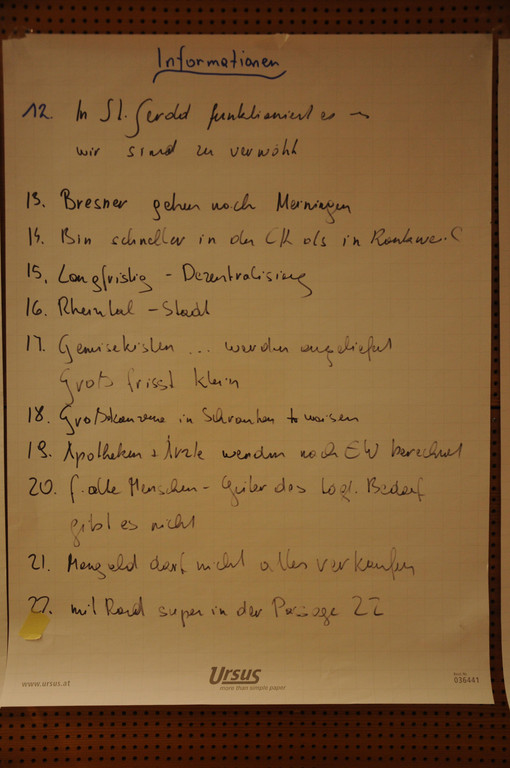 Informationen
12. In St. Gerold funktioniert es →
wir sind zu verwöhnt
13. Bresner gehen nach Meiningen
14. Bin schneller in der CH als in
15. Langfristig - Dezentralisierung
16. Rheintal - Stadt
17. Gemüsekisten ... werden angeliefert
Groß frisst klein
18. Großkonzerne in Schranken zu weisen
19. Apotheken + Ärzte werden nach EW berechnet
20. f. alle Menschen - Güter des tägl. Bedarf
gibt es nicht
21. Mangold darf nicht alles verkaufen
22. mit Rad super in der Passage 22
www.ursus.at
Ursus
more than simple paper
036441